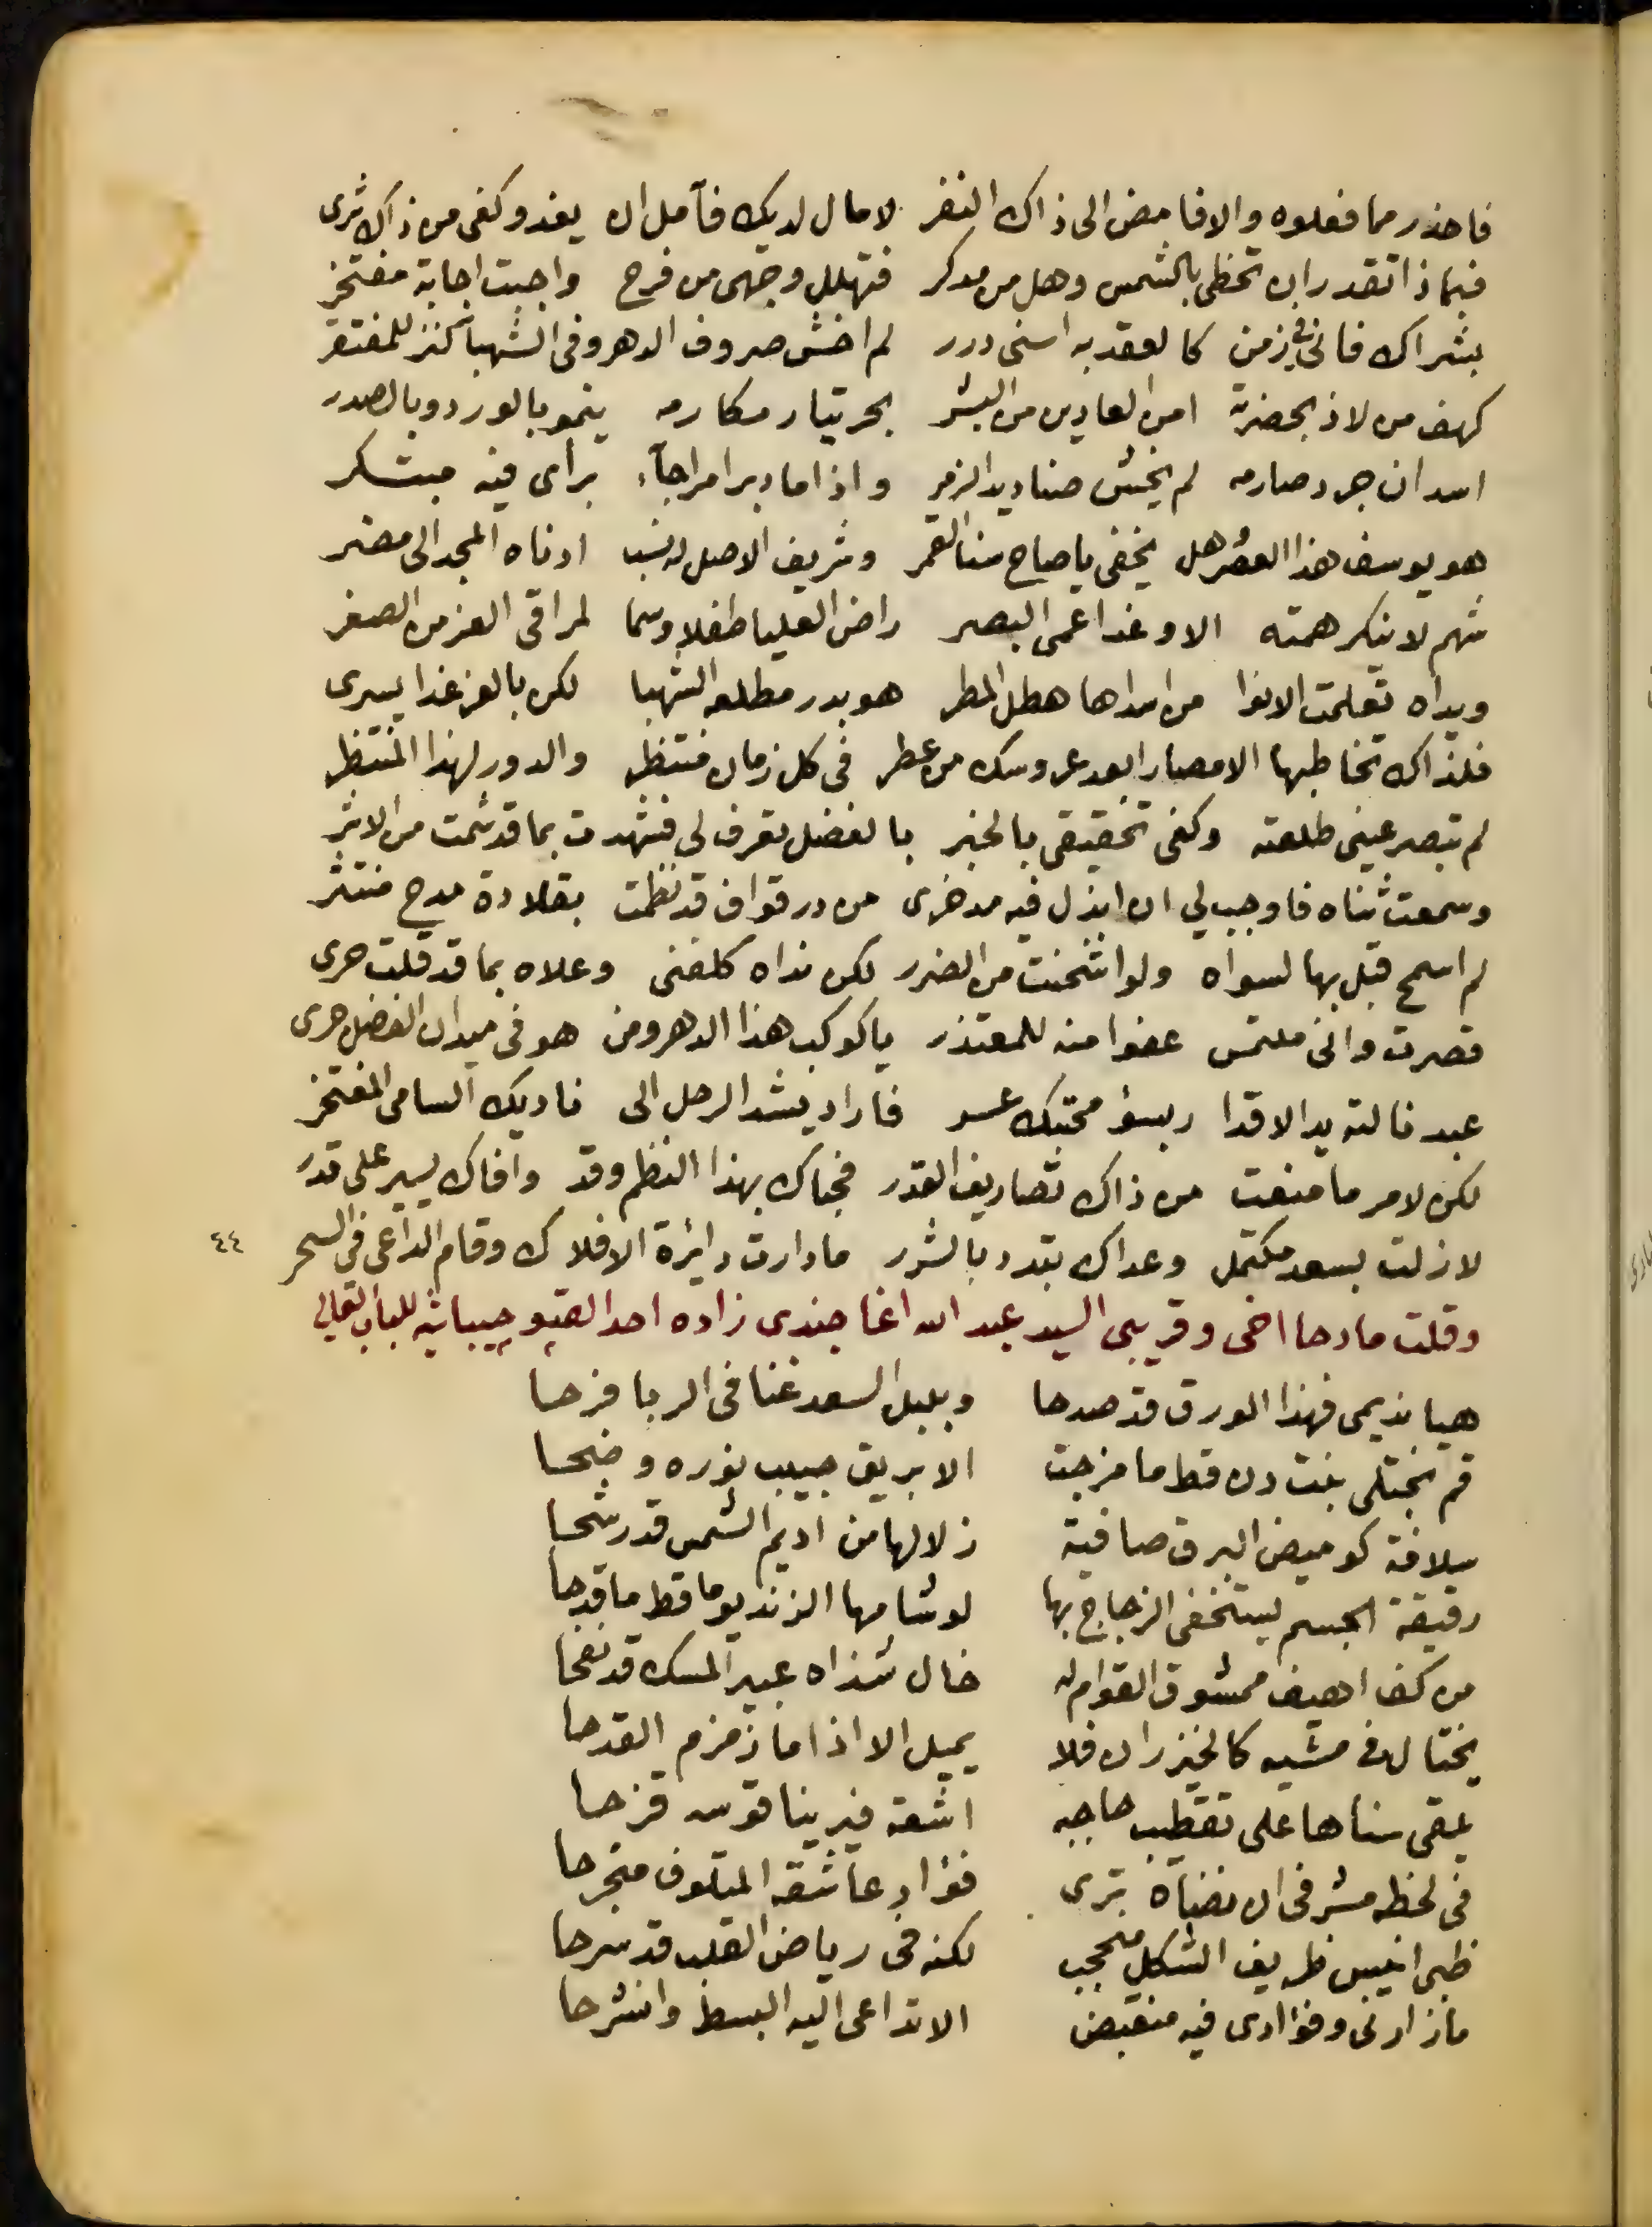 فاحذر مما فعلوه والا فامض الى ذاك النفر لا مال لديك فآمل ان يغدو كفى من ذاك ثرى
فبماذا تقدر ان تحظى بالشمس وهل من مدكر فتهلل وجهى من فرح واجبت اجابة مفتخر
بشراك فانى فى زمن كالعقد به اسنى درر لم اخش صروف الدهر وفى الشهبا كنز للمفتقر
كهف من لاذ بحضرته امن العادين من البشر بحر تيار مكارمه ينمو بالورد وبالصدر
اسد ان جرد صارمه لم يخش صناديد الزمر واذا ما دبر امرا جآء برأى فيه مبتكر
هو يوسف هذا العصر هل يخفى يا صاح سنا القمر وشريف الاصل له نسب ادناه المجد الى مضر
شهم لا ينكر همته الا وغدا عمى البصر راض العليا طفلا وسما لمراقى العز من الصغر
ويداه تعلمت الانوا من اسداها هطل المطر هو بدر مطلعه الشهبا لكن بالعز غدا يسرى
فلذاك تخاطبها الامصار ابعد عروسك من عطر فى كل زمان منتظر والدور لهذا المنتظر
لم تبصر عينى طلعته وكفى تحقيقى بالخبر بالفضل تعرف لى فشهدت بما قد شمت من الاثر
وسمعت ثناه فاوجب لي ان ابذل فيه مدخرى من در قواف قد نظمت بقلادة مدح منتثر
لم اسمح قبل بها لسواه ولو اثخنت من الضرر لكن نداه كلفنى وعلاه بما قد قلت حرى
قصرت وانى ملتمس عفوا منه للمعتذر ياكوكب هذا الدهر ومن هو فى ميدان الفضل جرى
عبد نالته يد الاقدا ر بسؤ محتبك عسر فاراد يشد الرحل الى ناديك السامى المفتخر
لكن لامر ما منعت من ذاك تصاريف القدر فجناك بهذا النظم وقد وافاك يسير على قدر
لا زلت بسعد مكتمل وعداك بتدد بالشرر ما دارت دايرة الافلاك وقام الداعى فى السحر ٤٤
وقلت مادحا اخى وقريبى السيد عبد الله اغا جندى زاده احد القپو جيباشيه للباب العالى
هيا نديمى فهذا الورق قد صدحا وبلبل السعد غنا فى الربا فرحا
قم نجتلى بنت دن قط ما مزجت الا بريق حبيب نوره وضحا
سلافة كوميض البرق صافية زلالها من اديم الشمس قد رشحا
رقيقة الجسم يستخفى الزجاج بها لو شامها الزند يوما قط ما قدحا
من كف اهيف ممشوق القوام له خال شذاه عبير المسك قد نفحا
يختال فى مشيه كالخيزران فلا يميل الا اذا ما زمزم القدحا
يلقى سناها على تقطيب حاجبه اشعة فيرينا قوسه قزحا
فى لحظه مشرفى ان نضاه ترى فؤاد عاشقه المتلوف منجرحا
ظبى انيس ظريف الشكل محجب لكنه فى رياض القلب قد سرحا
ما زارنى وفؤادى فيه منقبض الا تداعى اليه البسط وانشرحا